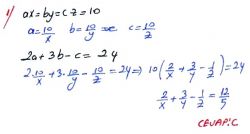 1) ax=by=cz=10
a=10/x b=10/y c=10/z
2a+3b-c=24
2.10/x+3.10/y-10/z=24 ⇒ 10(2/x+3/y-1/z)=24
2/x+3/y-1/z=12/5
CEVAP:C